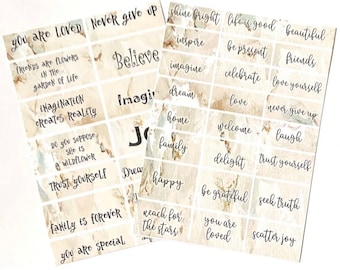 you are loved
Never give up
Friends are flowers
in the
garden of life
Believe
imagination
creates reality
imagin
Do you suppose
she is
a wildflower
Jo
Trust yourself
Dream
Family is forever
you are special
shine bright
life is good
beautiful
inspire
be present
friends
imagine
celebrate
love yourself
dream
love
never give up
home
welcome
laugh
family
delight
trust yourself
happy
be grateful
seek truth
reach for
the stars
you are
loved
scatter joy